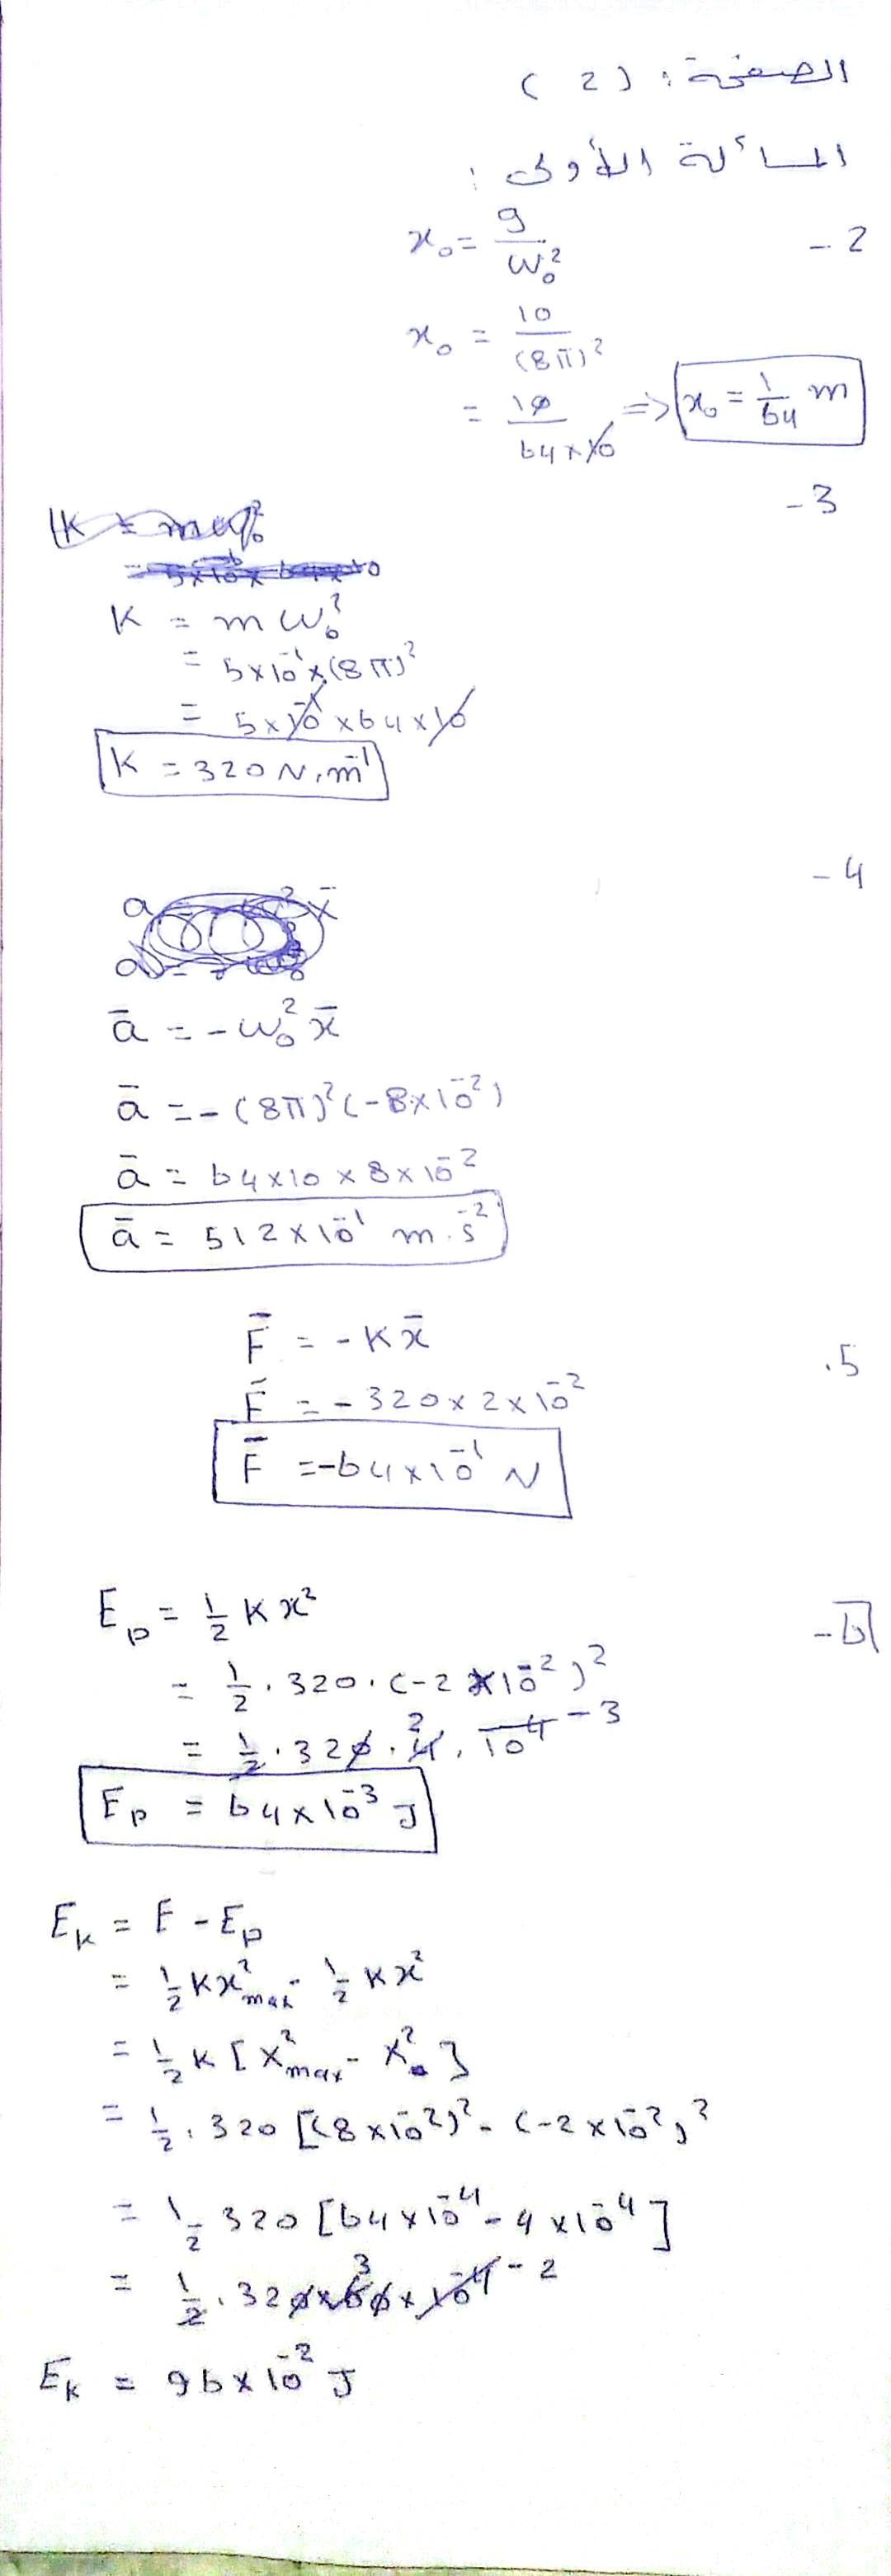 الصفحة : ( 2 )
المسألة الأولى :
2 - x₀ = g / ω₀²
x₀ = 10 / (8π)²
= 10 / 64 × 10 => x₀ = 1/64 m
3 -
K = m ω₀²
K = m ω₀²
= 5×10⁻¹ × (8π)²
= 5×10⁻¹ × 64 × 10
K = 320 N.m⁻¹
4 -
ā = - ω₀² x̄
ā = - (8π)² (-8×10⁻²)
ā = 64×10 × 8×10⁻²
ā = 512×10⁻¹ m.s⁻²
5. F̄ = - K x̄
F̄ = - 320 × 2×10⁻²
F̄ = -64×10⁻¹ N
6 - E_p = 1/2 K x²
= 1/2 . 320 . (-2×10⁻²)²
= 1/2 . 320 . 4 . 10⁻⁴ 2 -3
E_p = 64×10⁻³ J
E_k = E - E_p
= 1/2 K x²max - 1/2 K x²
= 1/2 K [ x²max - x² ]
= 1/2 . 320 [(8×10⁻²)² - (-2×10⁻²)²
= 1/2 320 [64×10⁻⁴ - 4×10⁻⁴]
= 1/2 . 320 × 60 × 10⁻⁴ 3 -2
E_k = 96×10⁻² J